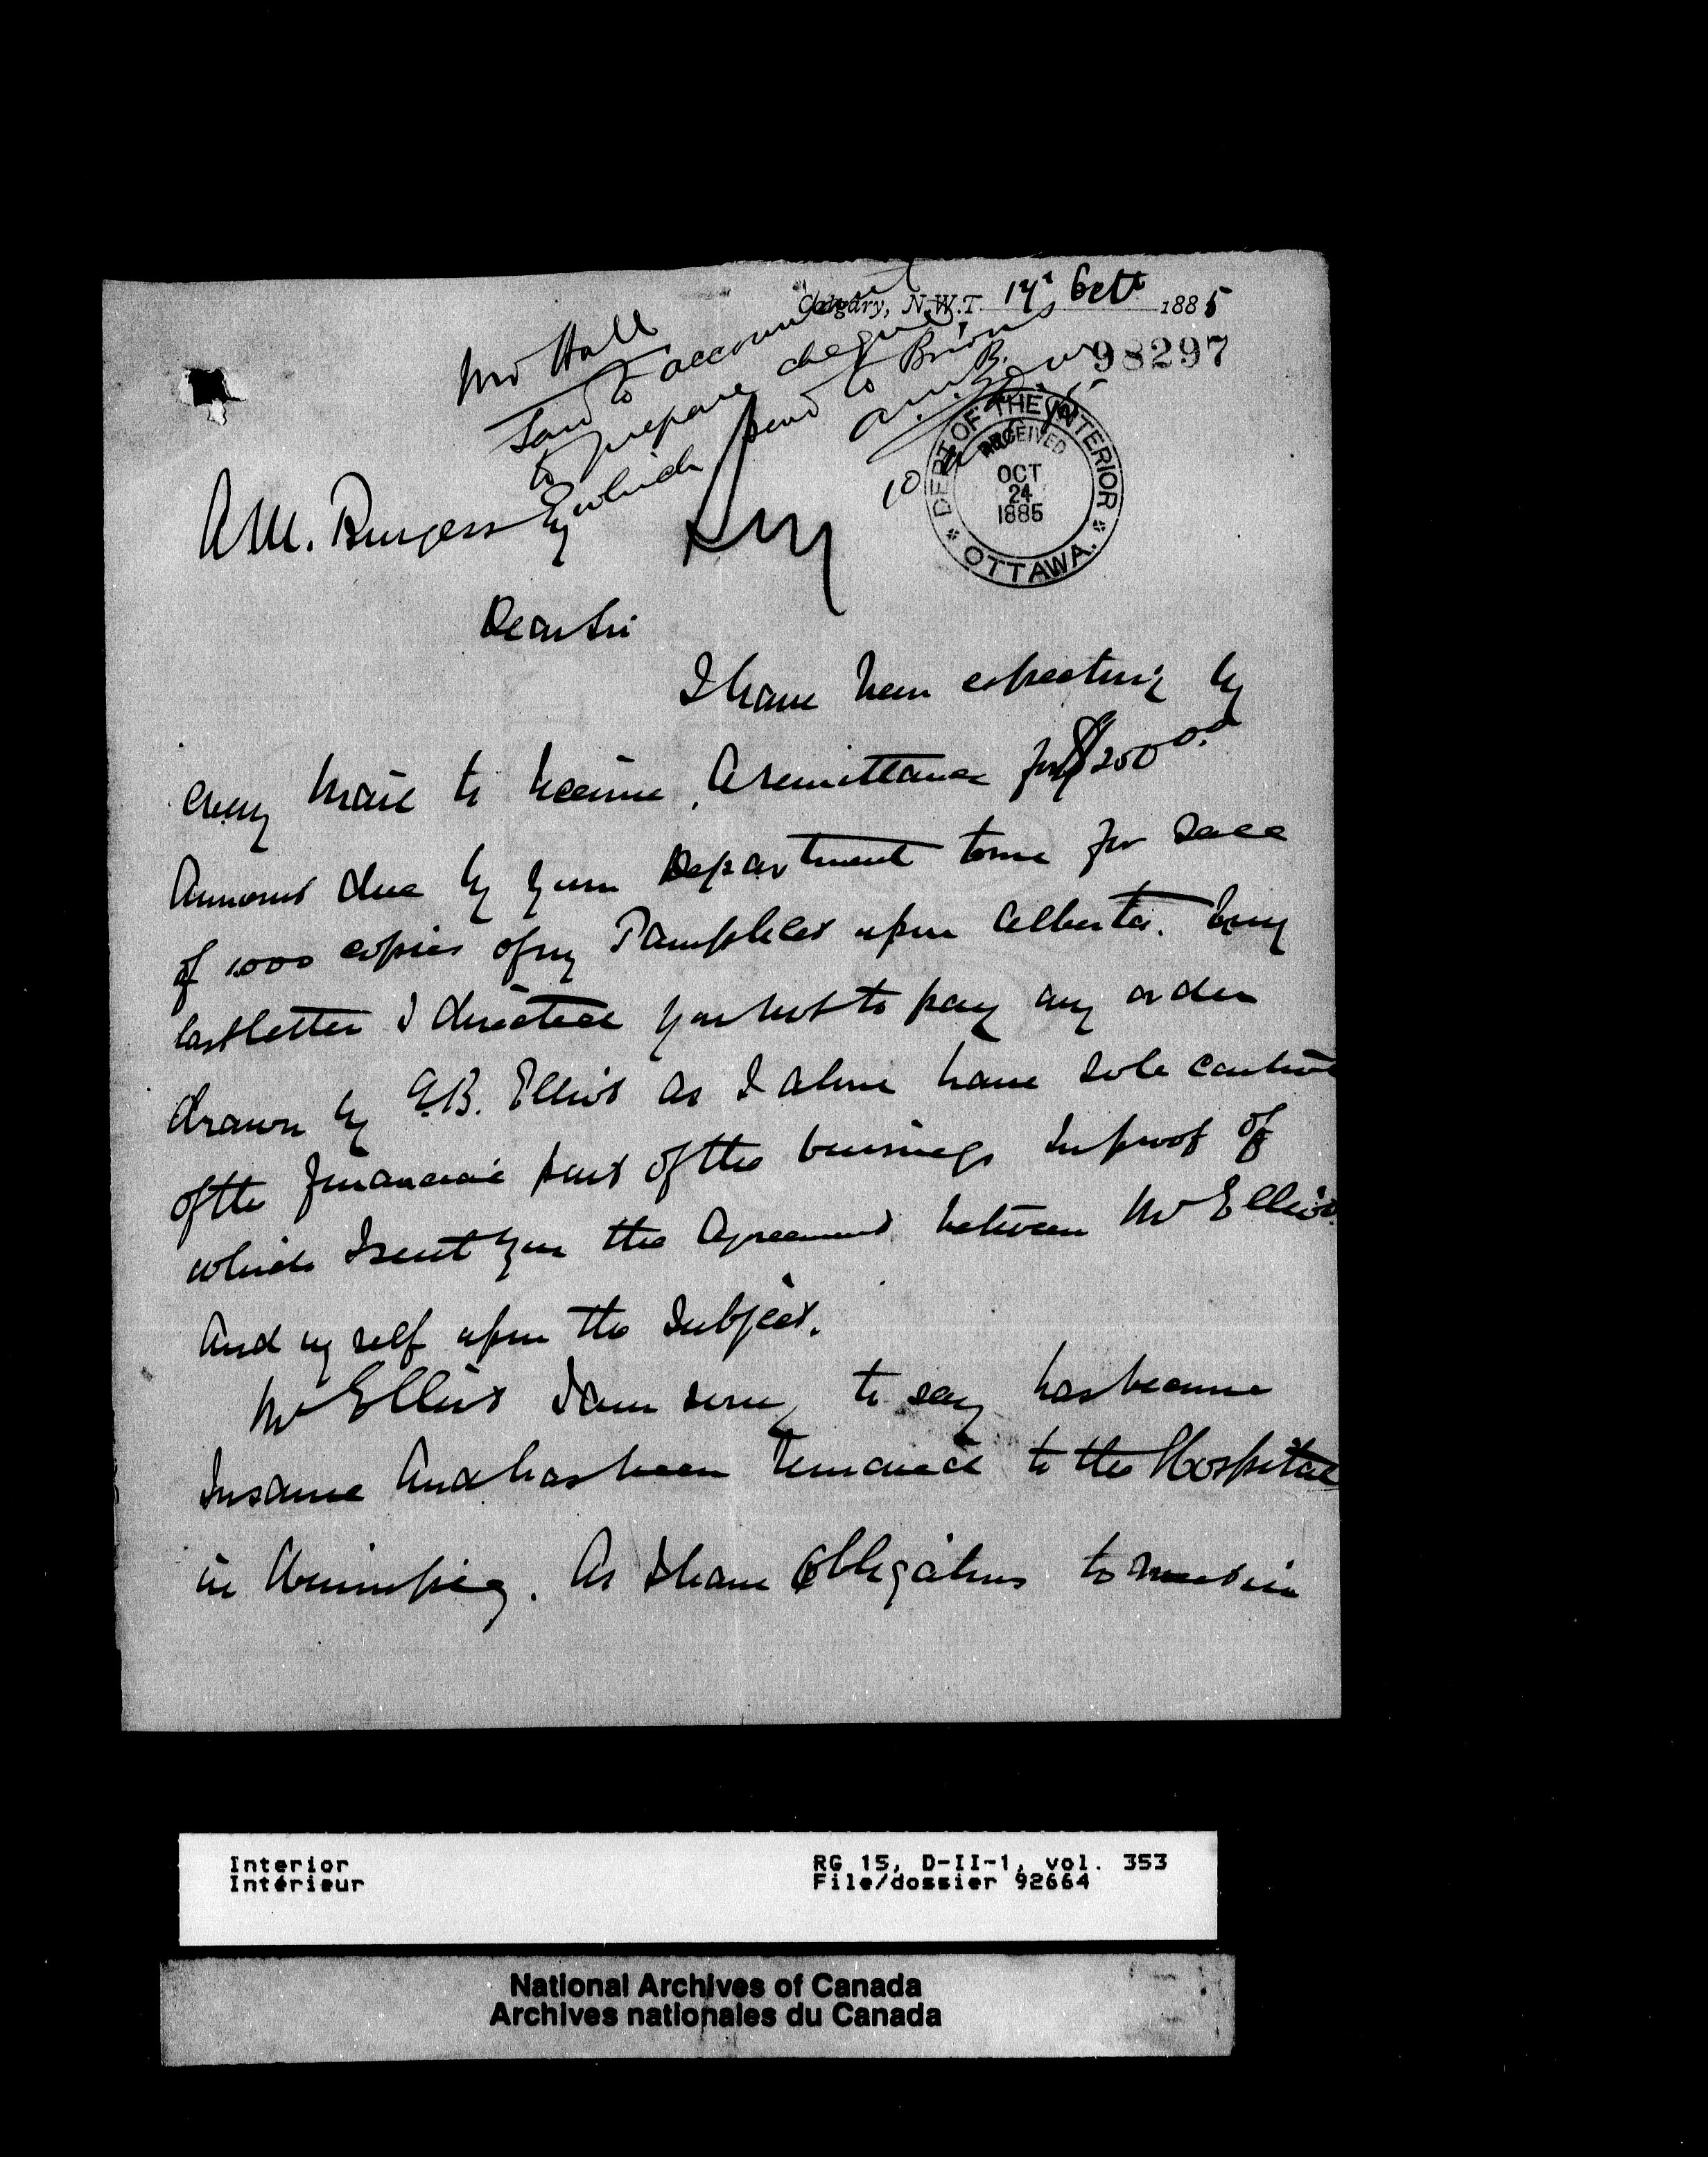 Calgary, N.W.T. 17 Octr 1885
98297
Mr Hall
Send to accountant
to prepare cheque,
which send to
A.M.B.
DEPT OF THE INTERIOR
RECEIVED
OCT
24
1885
OTTAWA.
A.M. Burgess Esq
Dear Sir
I have been expecting by
every mail to receive a remittance for $200 00
Amount due by your Department to me for Sale
of 1000 copies of my Pamphlet upon Alberta. By my
last letter I directed you not to pay any order
drawn by G.B. Elliot as I alone have sole control
of the financial part of the business In proof of
which I sent you the Agreement between Mr Elliot
And myself upon the Subject.
Mr Elliot I am sorry to say has become
Insane And has been removed to the Hospital
in Winnipeg. As I have obligations to meet in
Interior RG 15, D-II-1, vol. 353
Intérieur File/dossier 92664
National Archives of Canada
Archives nationales du Canada